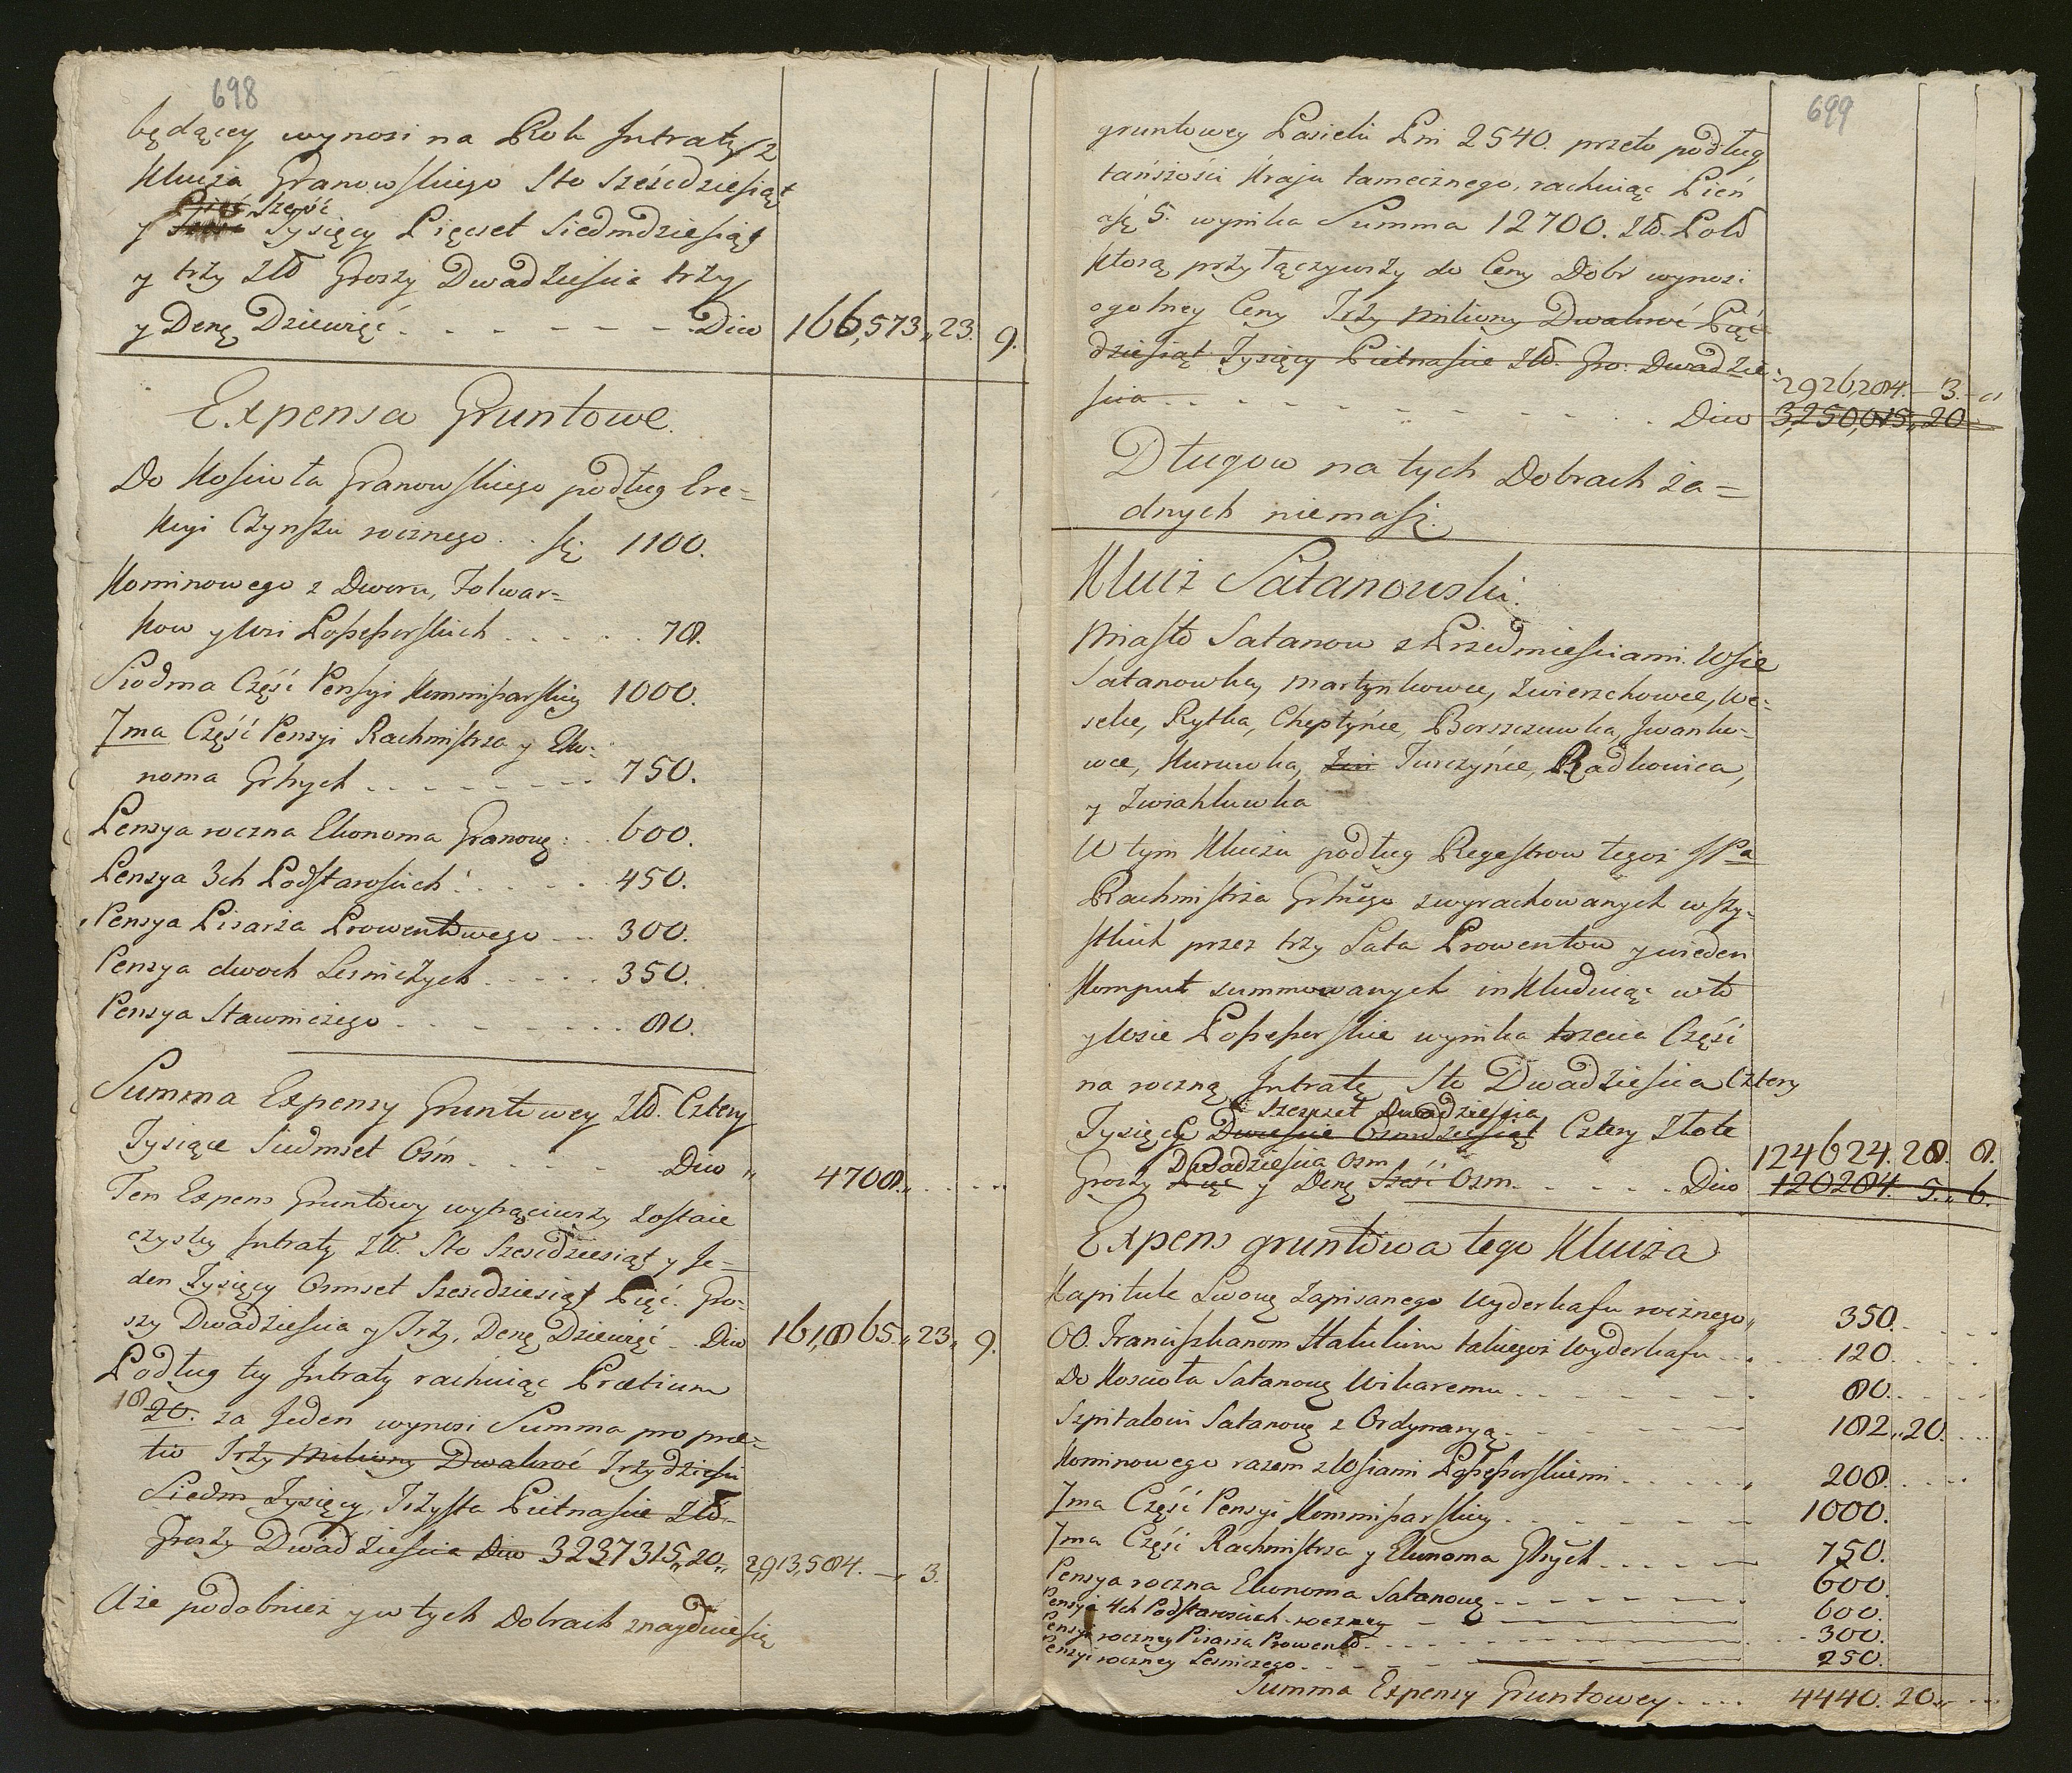 698
będącey wynosi na Rok Intraty z
Klucza Granowskiego Sto Sześćdziesiąt
Pięć Sześć
y Tysięcy Pięcset Siedmdziesiąt
y trzy Złł Groszy Dwadzieścia trzy
y Denę Dziewięć . - - - - - - Dico 166,573,,23. 9.
Expensa Gruntowe.
Do Kościoła Granowskiego podług Ere=
kcyi Czynszu rocznego . . 1100.
Kominowego z Dworu, Folwar=
kow y Wsi Possessorskich . . . . . 78.
Siodma Część Pensyi Kommissarskiey 1000.
7ma Część Pensyi Rachmistrza y Eko=
noma Gnłnych . . - - - - - - 750.
Pensya roczna Ekonoma Granowę: . . 600.
Pensya 3ch Podstarościch . . . . . 450.
Pensya Pisarza Prowentowego - - . 300.
Pensya dwoch Lesniczych . . . . . 350.
Pensya Stawniczego . . - - - - . . . 80.
Summa Expensy Gruntowey Złł. Cztery
Tysiące Siedmset Ośm . . . . . . Dico ,, 4708.,, . . . . ..
Ten Expens Gruntowy wytrąciwszy zostaie
czystey Intraty Złł. Sto Sześćdziesiąt y Je=
den Tysięcy Osmset Sześćdziesiąt Pięć. Gro=
szy Dwadzieścia y Trzy, Denę Dziewięć . . Dico 161,865.,,23,, 9.
Podług tey Intraty rachuiąc Praetium
18
20. za Jeden wynosi Summa pro prae=
tio Trzy Miliony Dwakroć Trzydzieści
Siedm Tysięcy, Trzysta Pietnascie Złł.
Groszy Dwadzieścia Dico 3237315,,20,, 2,913,584. -,, 3.
A że podobnież y w tych Dobrach znayduie się
699
gruntowey Pasieki Pni 2540. przeto podług
tańszości Kraju tamecznego, rachuiąc Pień
a 5. wynika Summa 12700. Złł. Pols
ktorą przyłączywszy do Ceny Dobr wynosi
ogolney Ceny Trzy Miliony Dwakroć Pięć
dziesiąt Tysięcy Pietnascie Złł. Gro: Dwadzie=
2926,284. - 3. -,,
ścia . . - - - - - - - - . Dico 3,250,015,,20
Długow na tych Dobrach ża=
dnych niemasz.
Klucz Satanowski.
Miasto Satanow z Przedmieściami. Wsie
Satanowka, Martynkowce, Zwierzchowce, We=
selec, Rytka, Cheptyńce, Borszczowka, Iwanko=
wce, Kurowka, Jurczyńce, Radkowica,
y Zwiahlowka
W tym Kluczu podług Regestrow tegoż JPa
Rachmistrza Gnłnego zwyrachowanych wszy=
stkich przez trzy Lata Prowentow y w ieden
Komput summowanych inkluduiąc w to
y Wsie Possessorskie wynika trzecia Część
na roczną Intratę Sto Dwadzieścia Cztery
Szesset Dwadzieścia
Tysięcy Dwieście Osmdziesiąt Cztery Złote
124624. 28. 8.
Dwadzieścia Osm
Groszy Pięć y Denę Sześć Osm . . - - - . . Dico 120284. 5.,, 6.
Expens gruntowa tego Klucza
Kapitule Lwowę Zapisanego Wyderkafu rocznego,, 350. . . . . -
OO. Franciszkanom Statutim takiegoż Wyderkafu . . . . . . 120 . . . . .
Do Kościoła Satanowę Wikaremu . . - - - - - 80. . . . . .
Szpitalowi Satanowę z Ordynaryą . . - - - - 182,,20. . . .
Kominowego razem z Wsiami Possessorskiemi . . . . . . 208. . . . .
7ma Część Pensyi Kommissarskiey . . . - - - - 1000.
7ma Część Rachmistrza y Ekonoma Gnłnych . . . . - - 750.
Pensya roczna Ekonoma Satanowę . . - - - - 600.
Pensyi 4ch Podstarościch roczney - - - 600.
Pensyi roczney Pisarza Prowento . . - - - - . . 300.
Pensyi roczney Lesniczego . . - - - - 250.
Summa Expensy Gruntowey . . . . 4440. 20.,, . . .